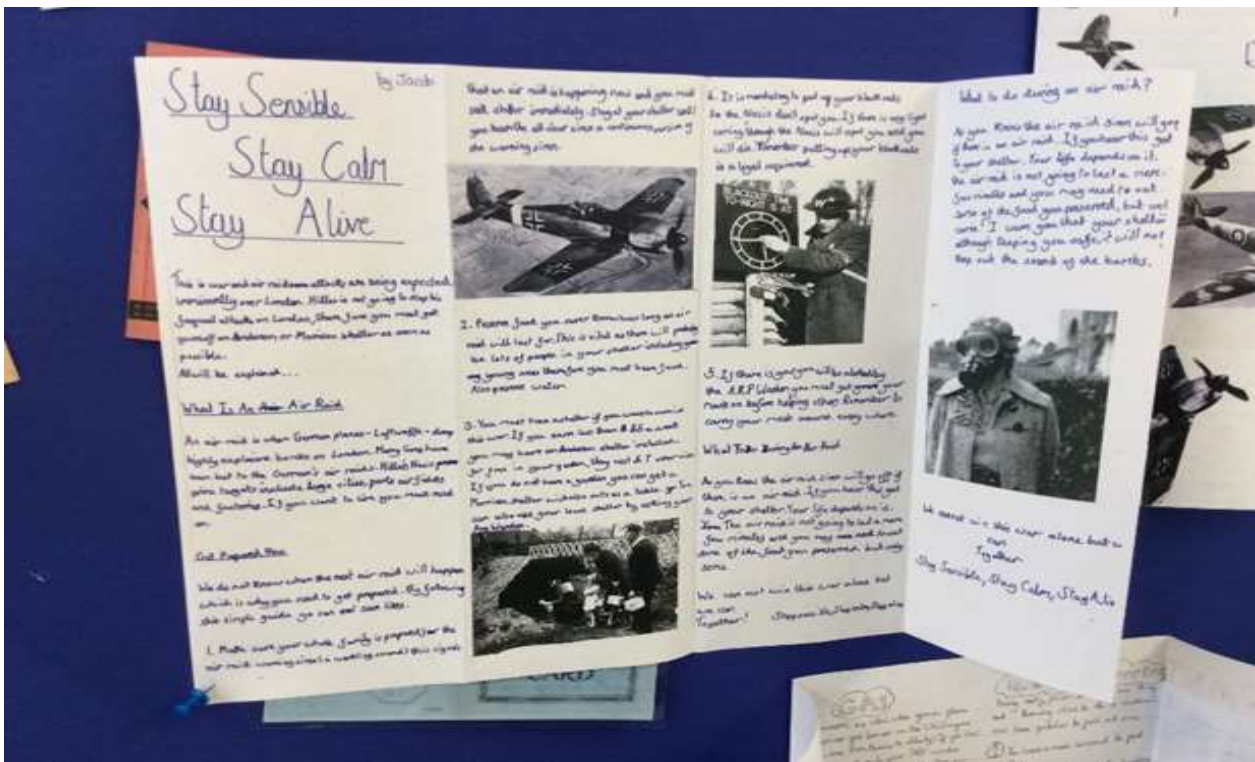 Stay Sensible
by Jacob
Stay Calm
Stay Alive
This is war and air raid attacks are being expected
over London. Hitler is not going to stop his
attacks on London, you must get
yourself an Anderson or Morrison shelter as soon as
possible.
All will be explained...
What Is An Air Raid
An air raid is when German planes - Luftwaffe - drop
highly explosive bombs on London. Many lives have
been lost to the German's air raids. Hitler's Nazis
targets include large cities, ports, airfields
and factories. If you want to live you must read
on.
Get Prepared Now
We do not know when the next air raid will happen
which is why you need to get prepared. By following
this simple guide you can save lives.
1. Make sure your whole family is prepared for the
air raid warning siren (a wailing sound) this signals
that an air raid is happening now and you must
seek shelter immediately. Stay at your shelter until
you hear the all clear siren a continuous of
the warning siren.
2. Preserve food you never know how long an air
raid will last for. This is vital as there will probably
be lots of people in your shelter including
young ones therefore you must have food.
Also preserve water.
3. You must have a shelter if you want to survive
this war. If you earn less than £5 a week
you may have an Anderson shelter installed
for free in your garden, they cost £7 otherwise.
If you do not have a garden you can get a
Morrison shelter which also acts as a table. Or you
can also use your local shelter by asking your
4. It is mandatory to put up your blackouts
so the Nazis don't spot you. If there is any light
coming through the Nazis will spot you and you
will die. Remember putting up your blackouts
is a legal requirement.
BLACKOUT TIME
TO-NIGHT
5. If there is gas you will be alerted by
the A.R.P Warden you must get your
mask on before helping others. Remember to
carry your mask around every where.
What To Do During An Air Raid
As you know the air raid siren will go off if
there is an air raid. If you hear this get
to your shelter. Your life depends on it.
The air raid is not going to last a mere
few minutes and you may need to eat
some of the food you preserved but only
some.
We can not win this war alone but
we can
Together!
Stay sensible, Stay calm, Stay alive
What to do during an air raid?
As you know the air raid siren will go
if there is an air raid. If you hear this get
to your shelter. Your life depends on it.
The air raid is not going to last a mere
few minutes and you may need to eat
some of the food you preserved, but
some! I warn you that your shelter
although keeping you safe, it will not
keep out the sound of the bombs.
We cannot win this war alone but we
can
Together
Stay Sensible, Stay Calm, Stay Alive
CARD